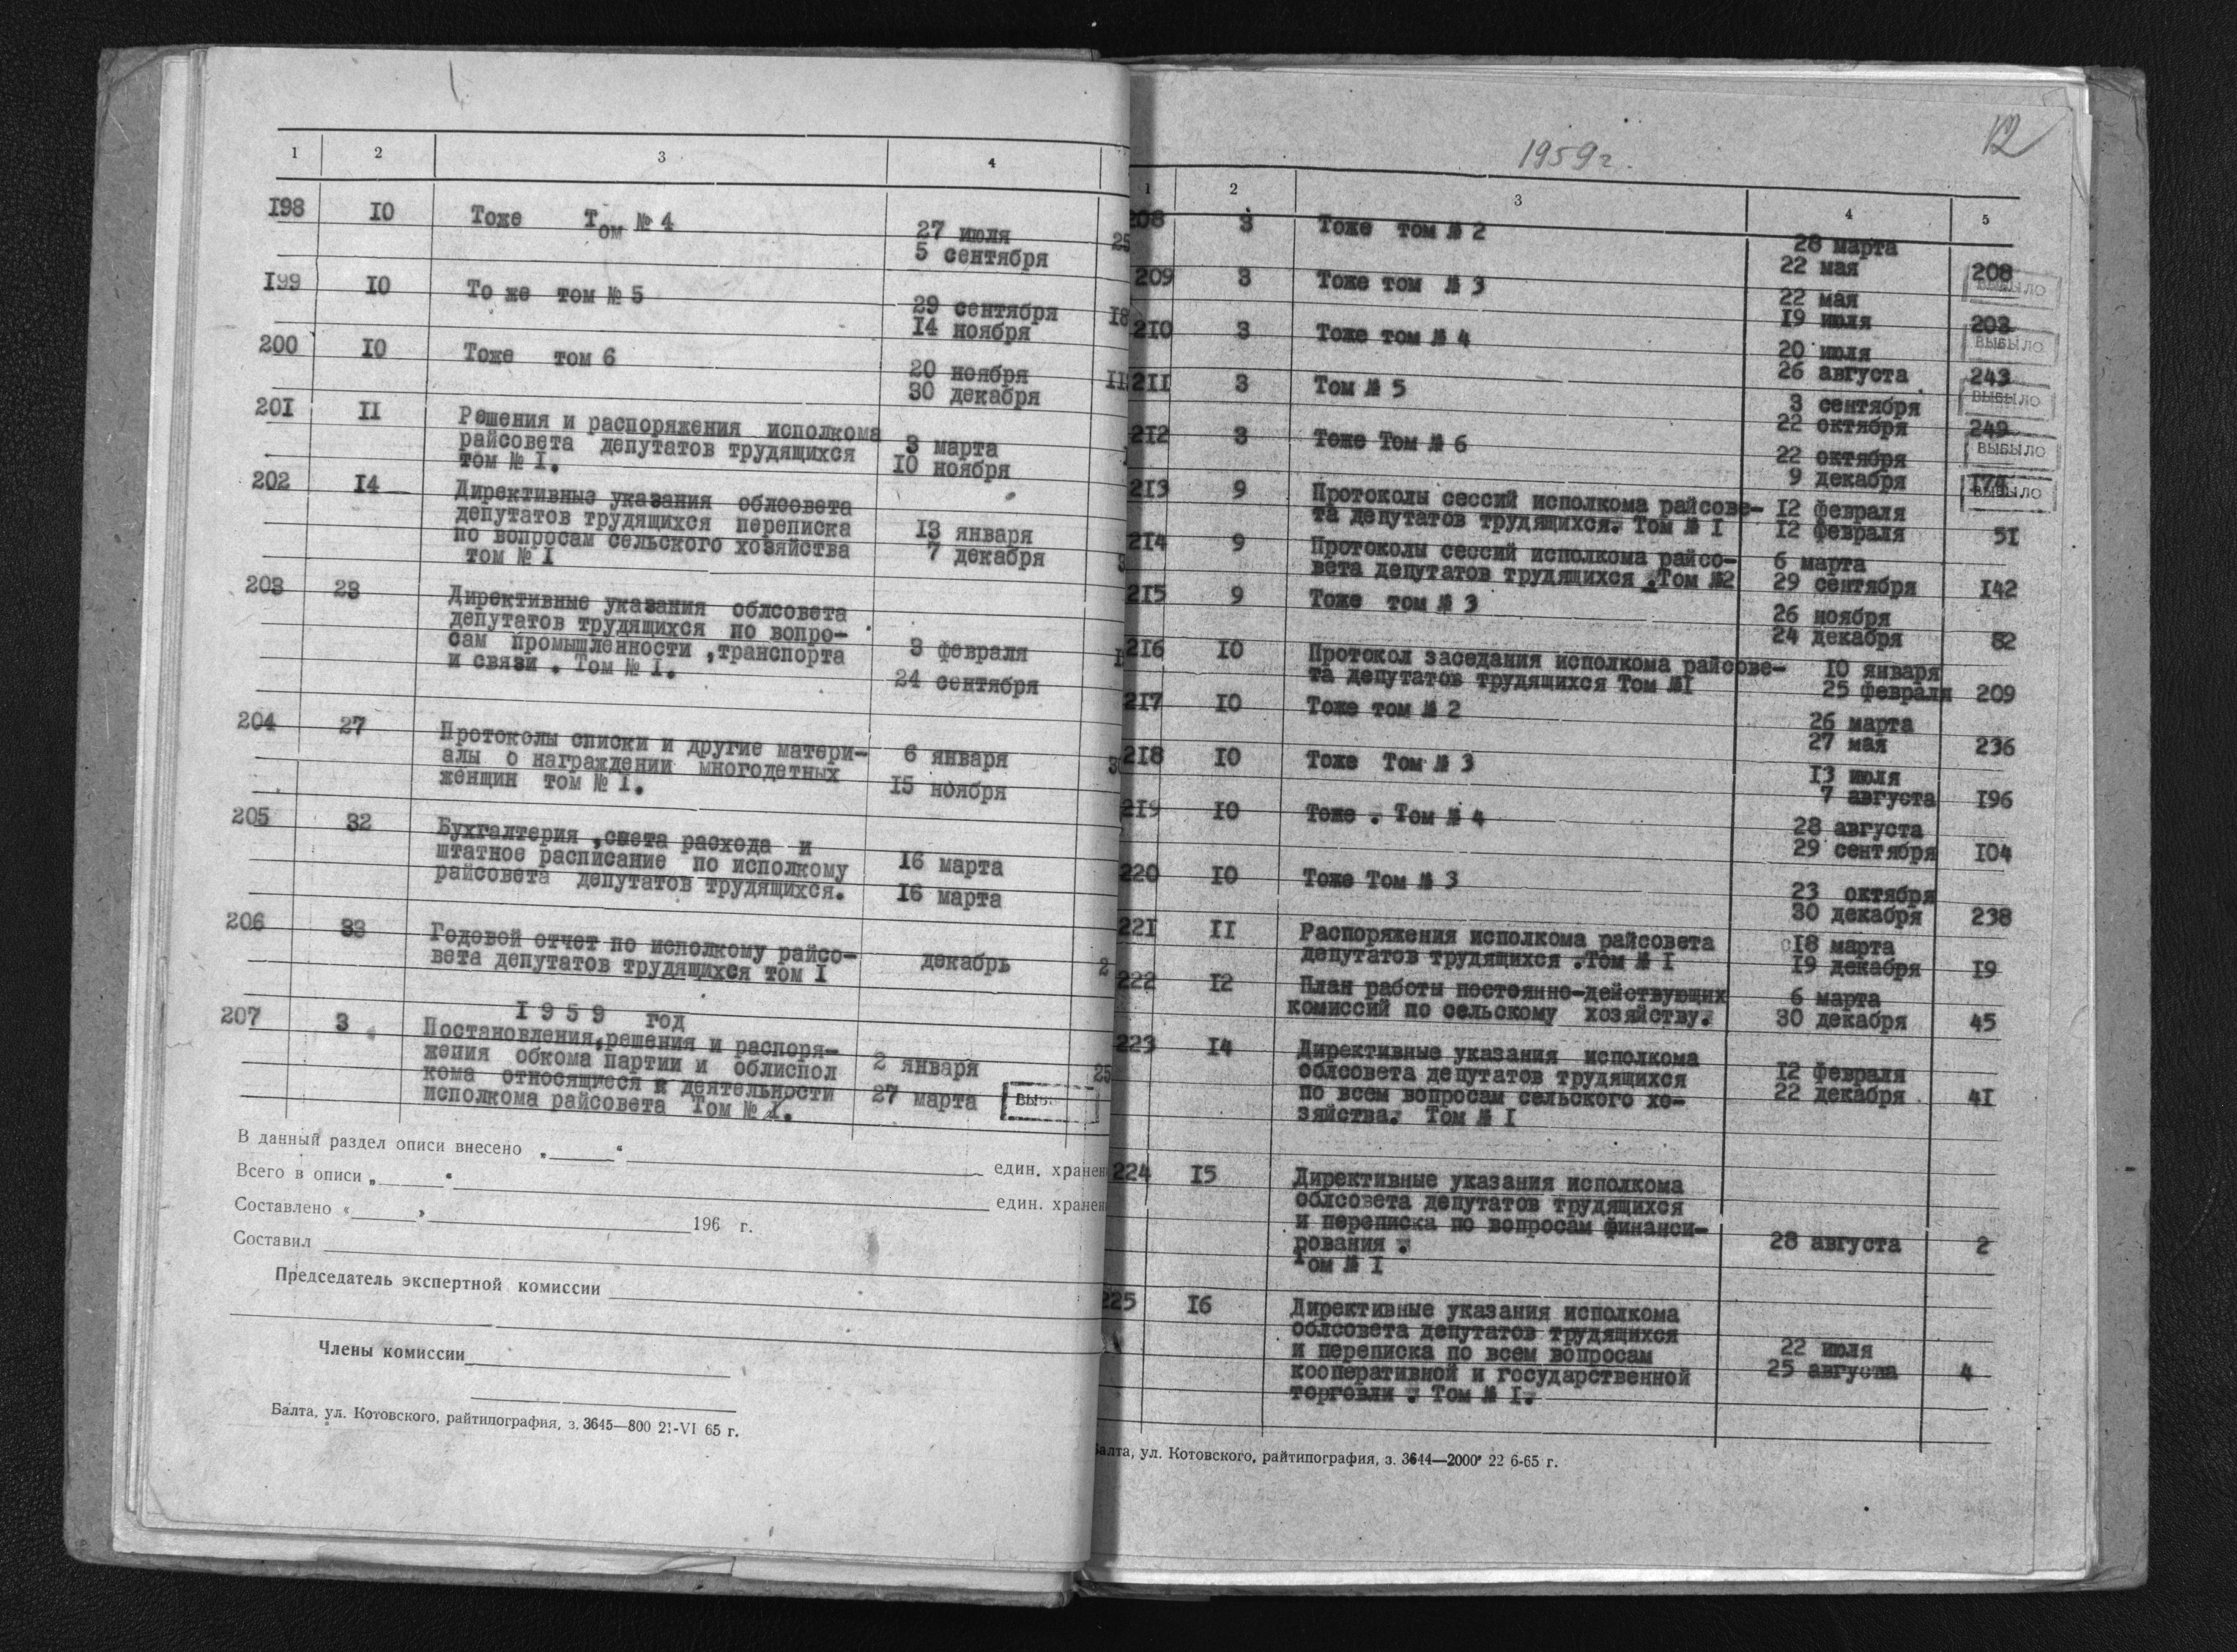 1 2 3 4
198 10 Тоже Том № 4
27 июля
5 сентября
199 10 То же том № 5
29 сентября
14 ноября
200 10 Тоже том 6
20 ноября
30 декабря
201 11 Решения и распоряжения исполкома
райсовета депутатов трудящихся 3 марта
том № I. 10 ноября
202 14 Директивные указания облсовета
депутатов трудящихся переписка 13 января
по вопросам сельского хозяйства 7 декабря
том № I
203 23 Директивные указания облсовета
депутатов трудящихся по вопро-
сам промышленности ,транспорта 3 февраля
и связи . Том № I. 24 сентября
204 27 Протоколы списки и другие матери- 6 января
алы о награждении многодетных
женщин том № I. 15 ноября
205 32 Бухгалтерия ,смета расхода и
штатное расписание по исполкому 16 марта
райсовета депутатов трудящихся. 16 марта
206 33 Годовой отчет по исполкому райсо- декабрь
вета депутатов трудящихся том I
1 9 5 9 год
207 3 Постановления,решения и распоря-
жения обкома партии и облиспол 2 января
кома относящиеся к деятельности 27 марта
исполкома райсовета Том № I.
В данный раздел описи внесено „ “
един. хранен
Всего в описи „ “
един. хранен
Составлено « » 196 г.
Составил
Председатель экспертной комиссии
Члены комиссии
Балта, ул. Котовского, райтипография, з. 3645—800 21-VI 65 г.
12
1959 г.
1 2 3 4 5
208 3 Тоже том № 2 28 марта
22 мая 208
выбыло
209 3 Тоже том № 3 22 мая
19 июля 203
выбыло
210 3 Тоже том № 4 20 июля
26 августа 243
выбыло
211 3 Том № 5 3 сентября
22 октября 249
выбыло
212 3 Тоже Том № 6 22 октября
9 декабря 174
выбыло
213 9 Протоколы сессий исполкома райсове- 12 февраля
та депутатов трудящихся. Том № I 12 февраля 51
214 9 Протоколы сессий исполкома райсо- 6 марта
вета депутатов трудящихся .Том №2 29 сентября 142
215 9 Тоже том № 3 26 ноября
24 декабря 82
216 10 Протокол заседания исполкома райсове- 10 января
та депутатов трудящихся Том №I 25 февраля 209
217 10 Тоже том № 2 26 марта
27 мая 236
218 10 Тоже Том № 3 13 июля
7 августа 196
219 10 Тоже . Том № 4 28 августа
29 сентября 104
220 10 Тоже Том № 3 23 октября
30 декабря 238
221 11 Распоряжения исполкома райсовета 18 марта
депутатов трудящихся .Том № I 19 декабря 19
222 12 План работы постоянно-действующих 6 марта
комиссий по сельскому хозяйству. 30 декабря 45
223 14 Директивные указания исполкома
облсовета депутатов трудящихся 12 февраля
по всем вопросам сельского хо- 22 декабря 41
зяйства. Том № I
224 15 Директивные указания исполкома
облсовета депутатов трудящихся
и переписка по вопросам финанси-
рования . 28 августа 2
Том № I
225 16 Директивные указания исполкома
облсовета депутатов трудящихся
и переписка по всем вопросам 22 июля
кооперативной и государственной 25 августа 4
торговли . Том № I.
Балта, ул. Котовского, райтипография, з. 3644—2000 22 6-65 г.